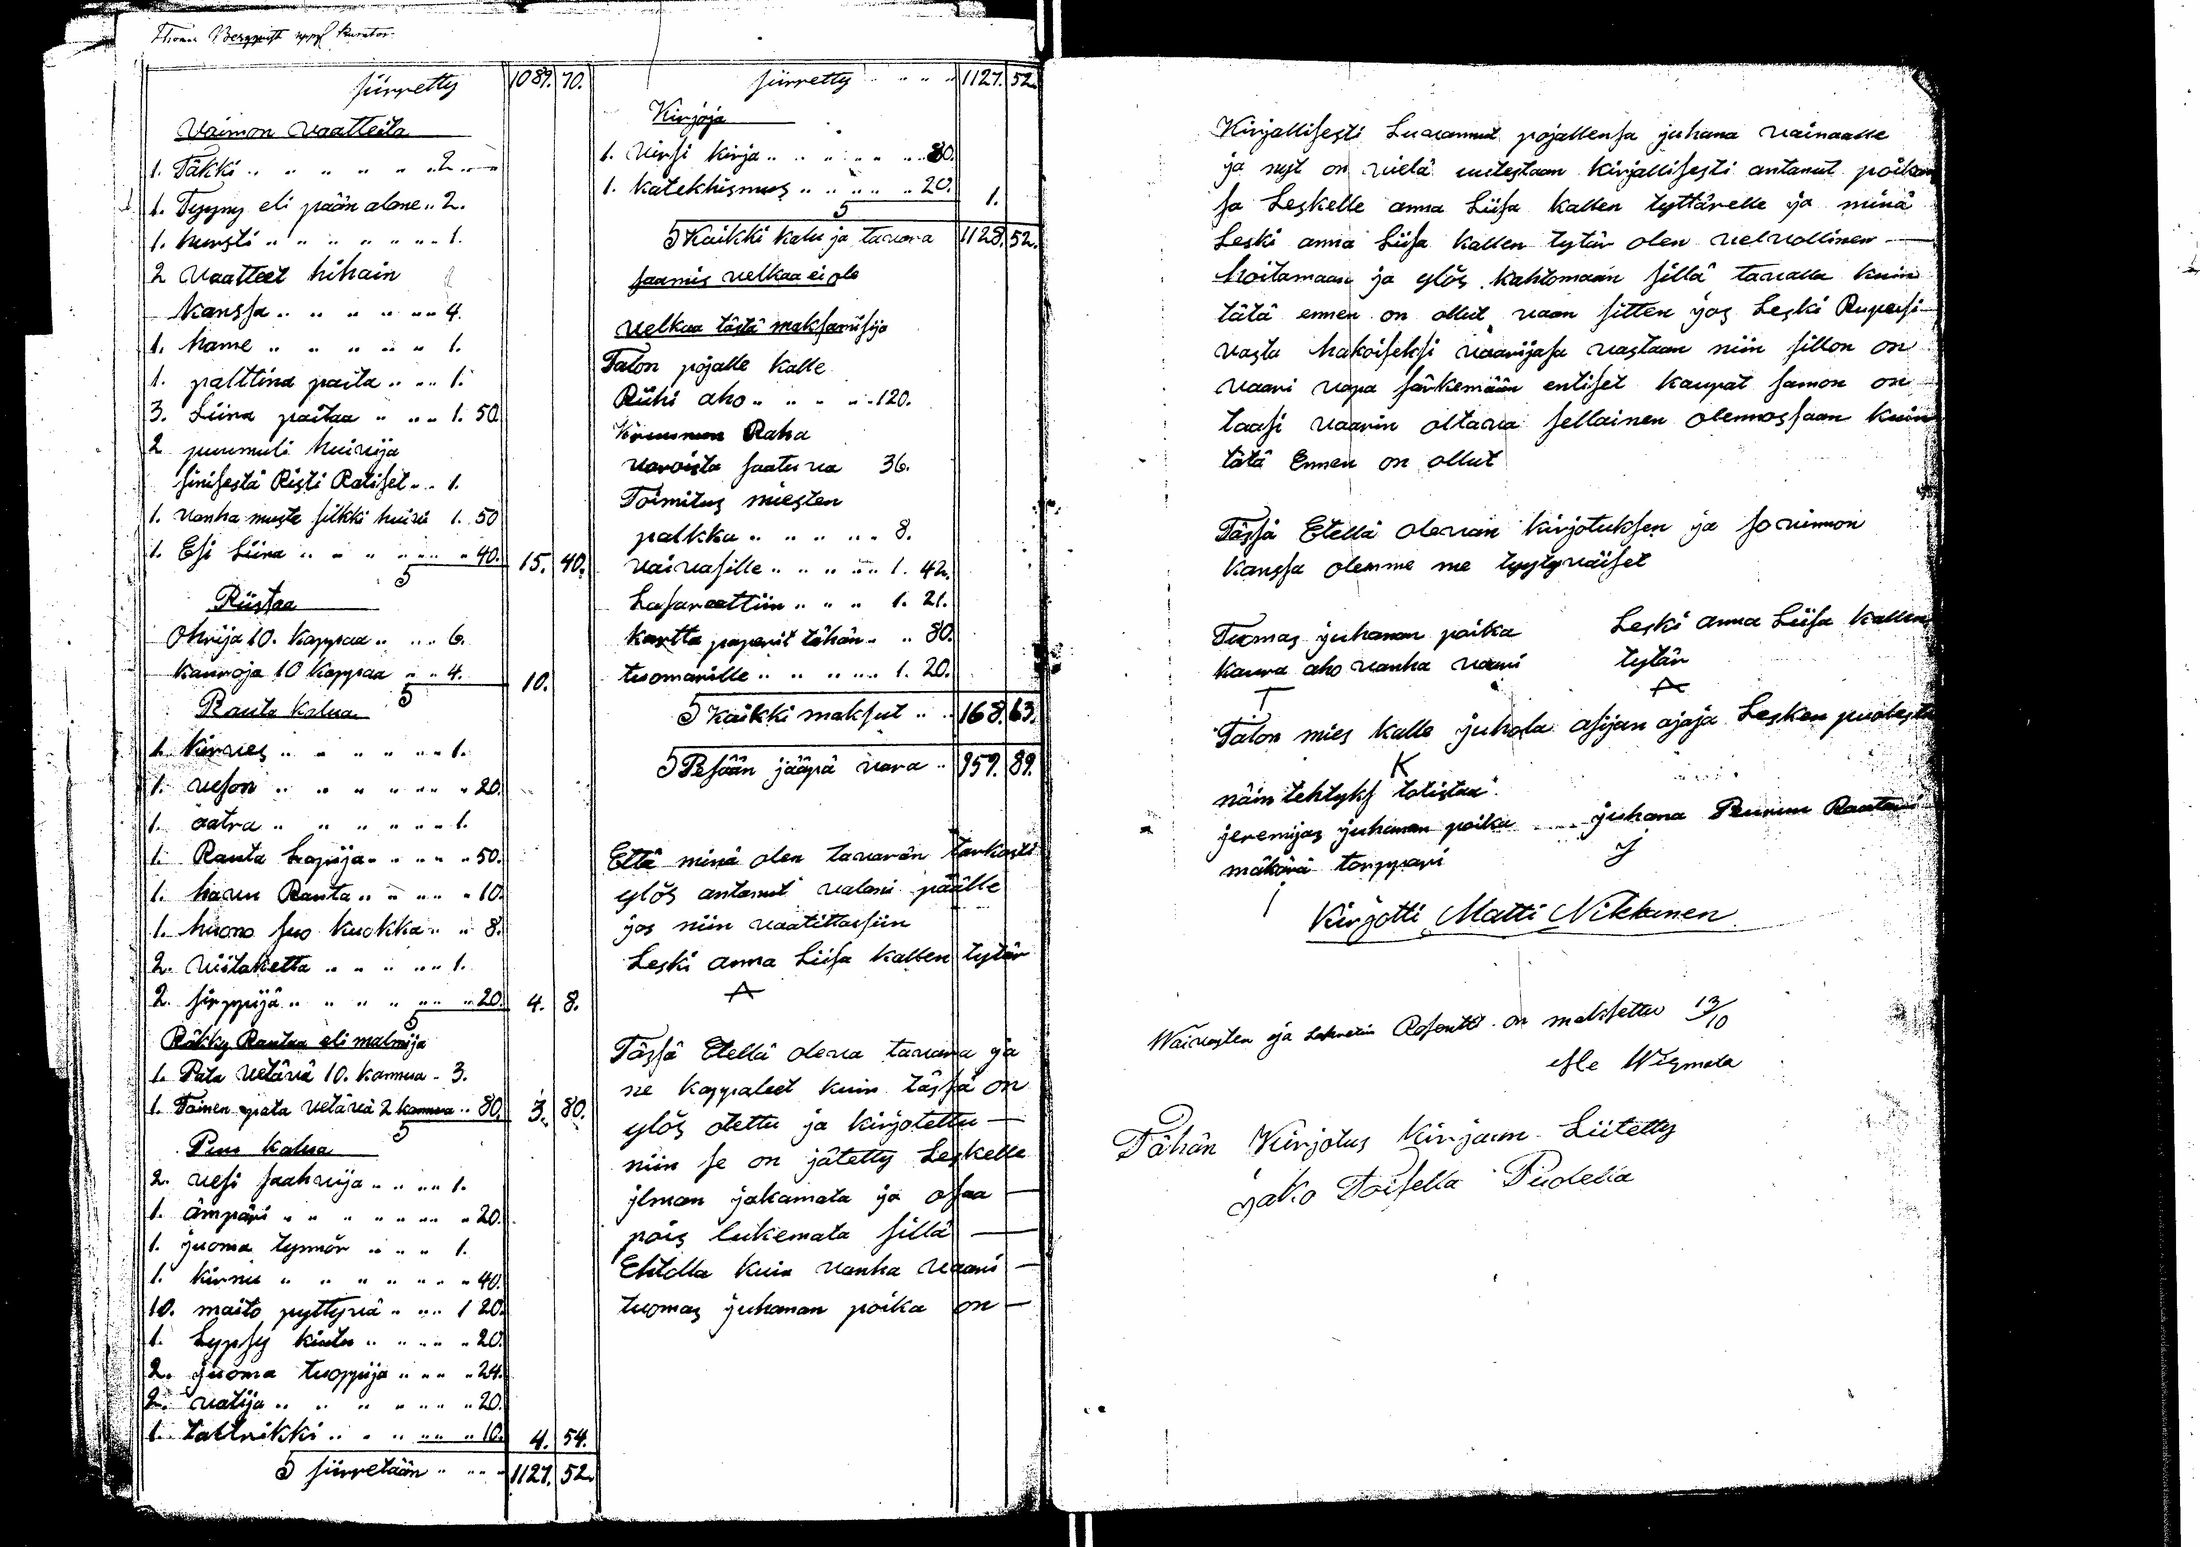 Thomas Bergqvist uppsl kurator.
siirretty 1089. 70.
Vaimon vaatteita
1. Täkki .. .. .. .. .. .. 2. —
1. Tyyny eli pään alone .. 2.
1. hursti .. .. .. .. .. .. 1.
2 vaatteet hihain
kanssa .. .. .. .. .. 4.
1. hame .. .. .. .. .. 1.
1. palttina paita .. .. .. 1.
3. Liina paitaa .. .. .. 1. 50
2 puumuli huivija
sinisestä Risti Ratiset .. .. 1.
1. vanha musta silkki huivi 1. 50
1. Esi Liina .. .. .. .. .. .. 40. 15. 40.
Riistaa
Ohrija 10. kappaa .. .. .. 6.
kauroja 10 kappaa .. .. 4. 10.
Rauta kalua
1. kirves .. .. .. .. .. .. 1.
1. veson .. .. .. .. .. .. 20.
1. aatra .. .. .. .. .. .. 1.
1. Rauta Lapija .. .. .. .. 50.
1. harvu Rauta .. .. .. .. 10.
1. huono suo kuokka .. .. 8.
2. viitaketta .. .. .. .. .. 1.
2. sirppijä .. .. .. .. .. .. 20. 4. 8.
Räkky Rautaa eli malmija
1. Pata vetävä 10. kannua .. 3.
1. Toinen pata vetävä 2 kannua .. 80. 3. 80.
Puu kalua
2. vesi saahvija .. .. .. 1.
1. ämpäri .. .. .. .. .. .. 20.
1. juoma tynnör .. .. .. 1.
1. kirnu .. .. .. .. .. .. 40.
10. maito pyttyvä .. .. .. 1 20.
1. Lypsy kiulu .. .. .. .. 20.
2. juoma tuoppija .. .. .. 24.
2. vatija .. .. .. .. .. .. 20.
1. taltrikki .. .. .. .. .. 10. 4. 54.
S siirretään .. .. .. 1127. 52.
siirretty .. .. .. 1127. 52.
Kirjoja
1. virsi kirja .. .. .. .. .. 80.
1. katekhismus .. .. .. .. 20. 1.
S Kaikki kalu ja tavara 1128. 52.
saamis velkaa ei ole
velkaa tästä maksamisija
Talon pojalle kalle
Riihi aho .. .. .. .. 120.
kruunun Raha
varoista saatuva 36.
Toimitus miesten
palkka .. .. .. .. .. 8.
vaivasille .. .. .. .. 1. 42.
Lasareettiin .. .. .. 1. 21.
kartta paperit tähän .. .. 80.
tuomarille .. .. .. .. 1. 20.
S kaikki maksut .. .. 168. 63.
S Pesään jääpä vara .. 959. 89.
Että minä olen tavarän tarkasti
ylös antanut valani päälle
jos niin vaatittasiin
Leski anna Liisa kallen tytär
A
Tässä Etellä oleva tavara ja
ne kappaleet kuin tässä on
ylös otettu ja kirjotettu —
niin se on jätetty Leskelle
jlman jakamata ja osaa —
pois lukemata sillä —
Ehtolla kuin vanha vaari —
tuomas juhanan poika on —
Kirjallisesti Luvannut pojallensa juhana vainaalle
ja nyt on vielä uutestaan kirjallisesti antanut poikan
sa Leskelle anna Liisa kallen tyttärelle ja minä
Leski anna Liisa kallen tytär olen velvollinen —
hoitamaan ja ylös kahtomaan sillä tavalla kuin
tätä ennen on ollut vaan sitten jos Leski Rupeisi
vasta hakoiseksi vaarijasa vastaan niin sillon on
vaari vapa särkemään entiset kaupat samon on
taasi vaarin oltava sellainen olennossaan kuin
tätä Ennen on ollut
Tässä Etellä olevan kirjotuksen ja sovinnon
kanssa olemme me tyytyväiset
Tuomas juhanan poika Leski anna Liisa kallen
kaura aho vanha vaari tytär
T A
Talon mies kalle juhola asijan ajaja Lesken puolesta
K
näin tehtyks totistaa
jeremijas juhanan poika .... juhana Peurun Rautari
mäkärä torppari J
i
Kirjotti Matti Nikkanen
Waivasten ja Lasaretin Rosentti on maksettu 13/10
Tähän Kirjotus kirjaan Liitetty
jako Toisella Puolella